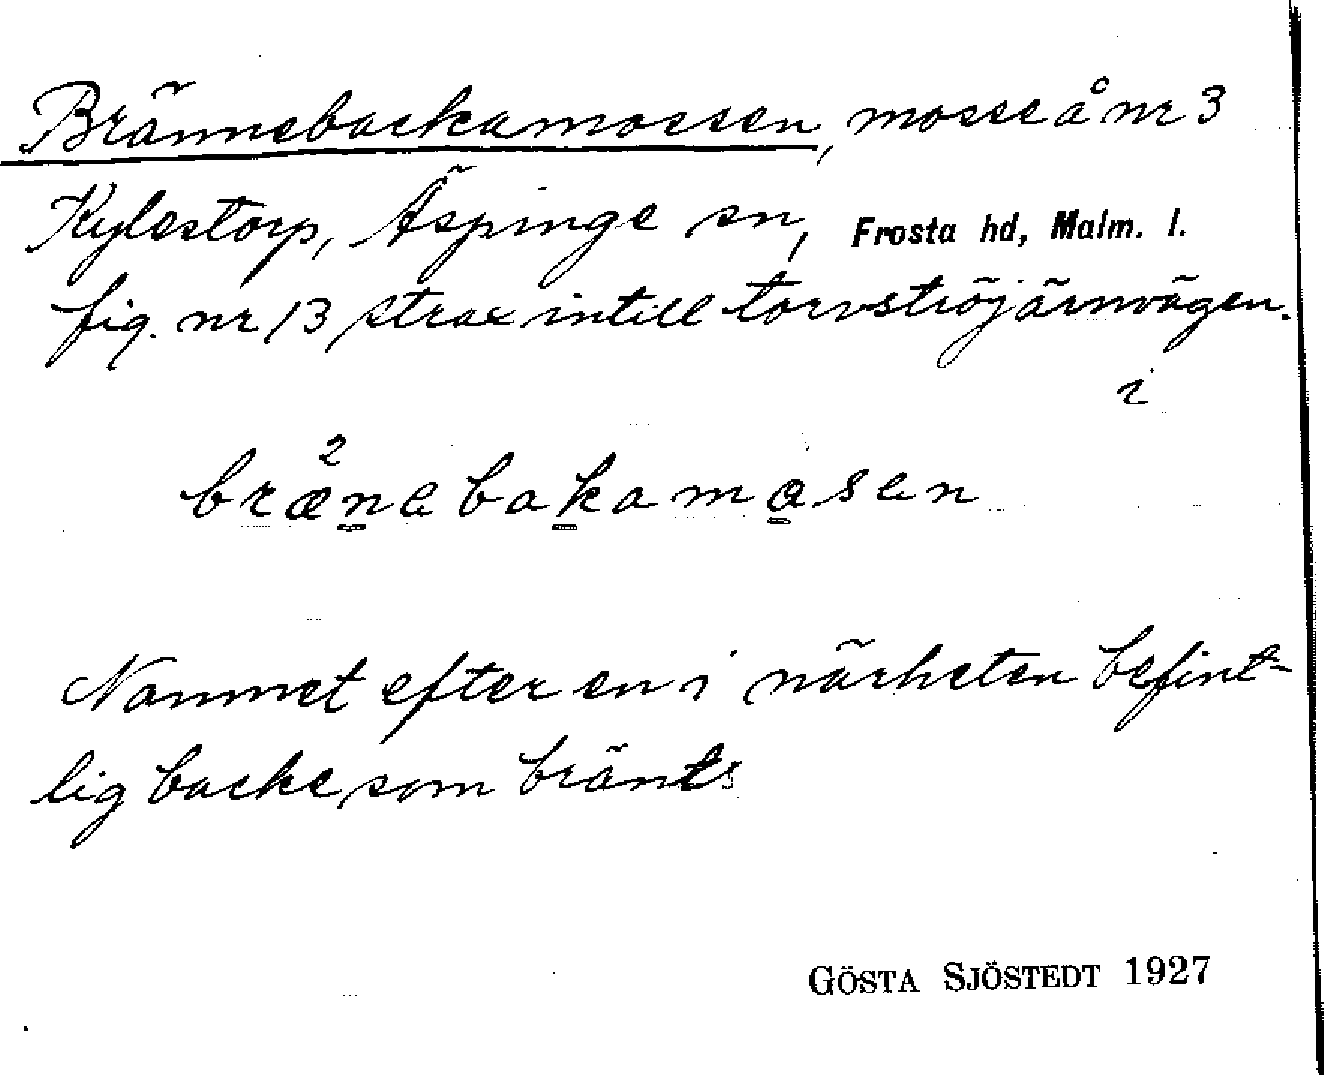 Brännebackamossen, mosse å nr 3
Kylestorp, Äspinge sn, Frosta hd, Malm. l.
fig. nr 13 strax intill torvströjärnvägen.
i
2
brænebakamosen
Namnet efter en i närheten befint-
lig backe, som bränts
GÖSTA SJÖSTEDT 1927